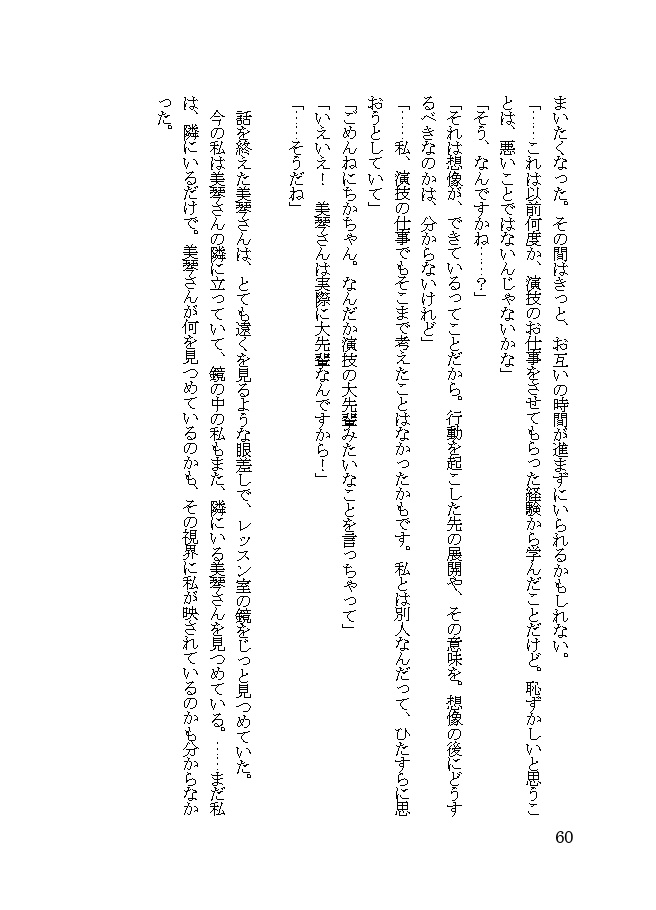 まいたくなった。その間はきっと、お互いの時間が進まずにいられるかもしれない。
「……これは以前何度か、演技のお仕事をさせてもらった経験から学んだことだけど。恥ずかしいと思うこ
とは、悪いことではないんじゃないかな」
「そう、なんですかね……？」
「それは想像が、できているってことだから。行動を起こした先の展開や、その意味を。想像の後にどうす
るべきなのかは、分からないけれど」
「……私、演技の仕事でもそこまで考えたことはなかったかもです。私とは別人なんだって、ひたすらに思
おうとしていて」
「ごめんねにちかちゃん。なんだか演技の大先輩みたいなことを言っちゃって」
「いえいえ！　美琴さんは実際に大先輩なんですから！」
「……そうだね」
話を終えた美琴さんは、とても遠くを見るような眼差しで、レッスン室の鏡をじっと見つめていた。
今の私は美琴さんの隣に立っていて、鏡の中の私もまた、隣にいる美琴さんを見つめている。……まだ私
は、隣にいるだけで。美琴さんが何を見つめているのかも、その視界に私が映されているのかも分からなか
った。
60